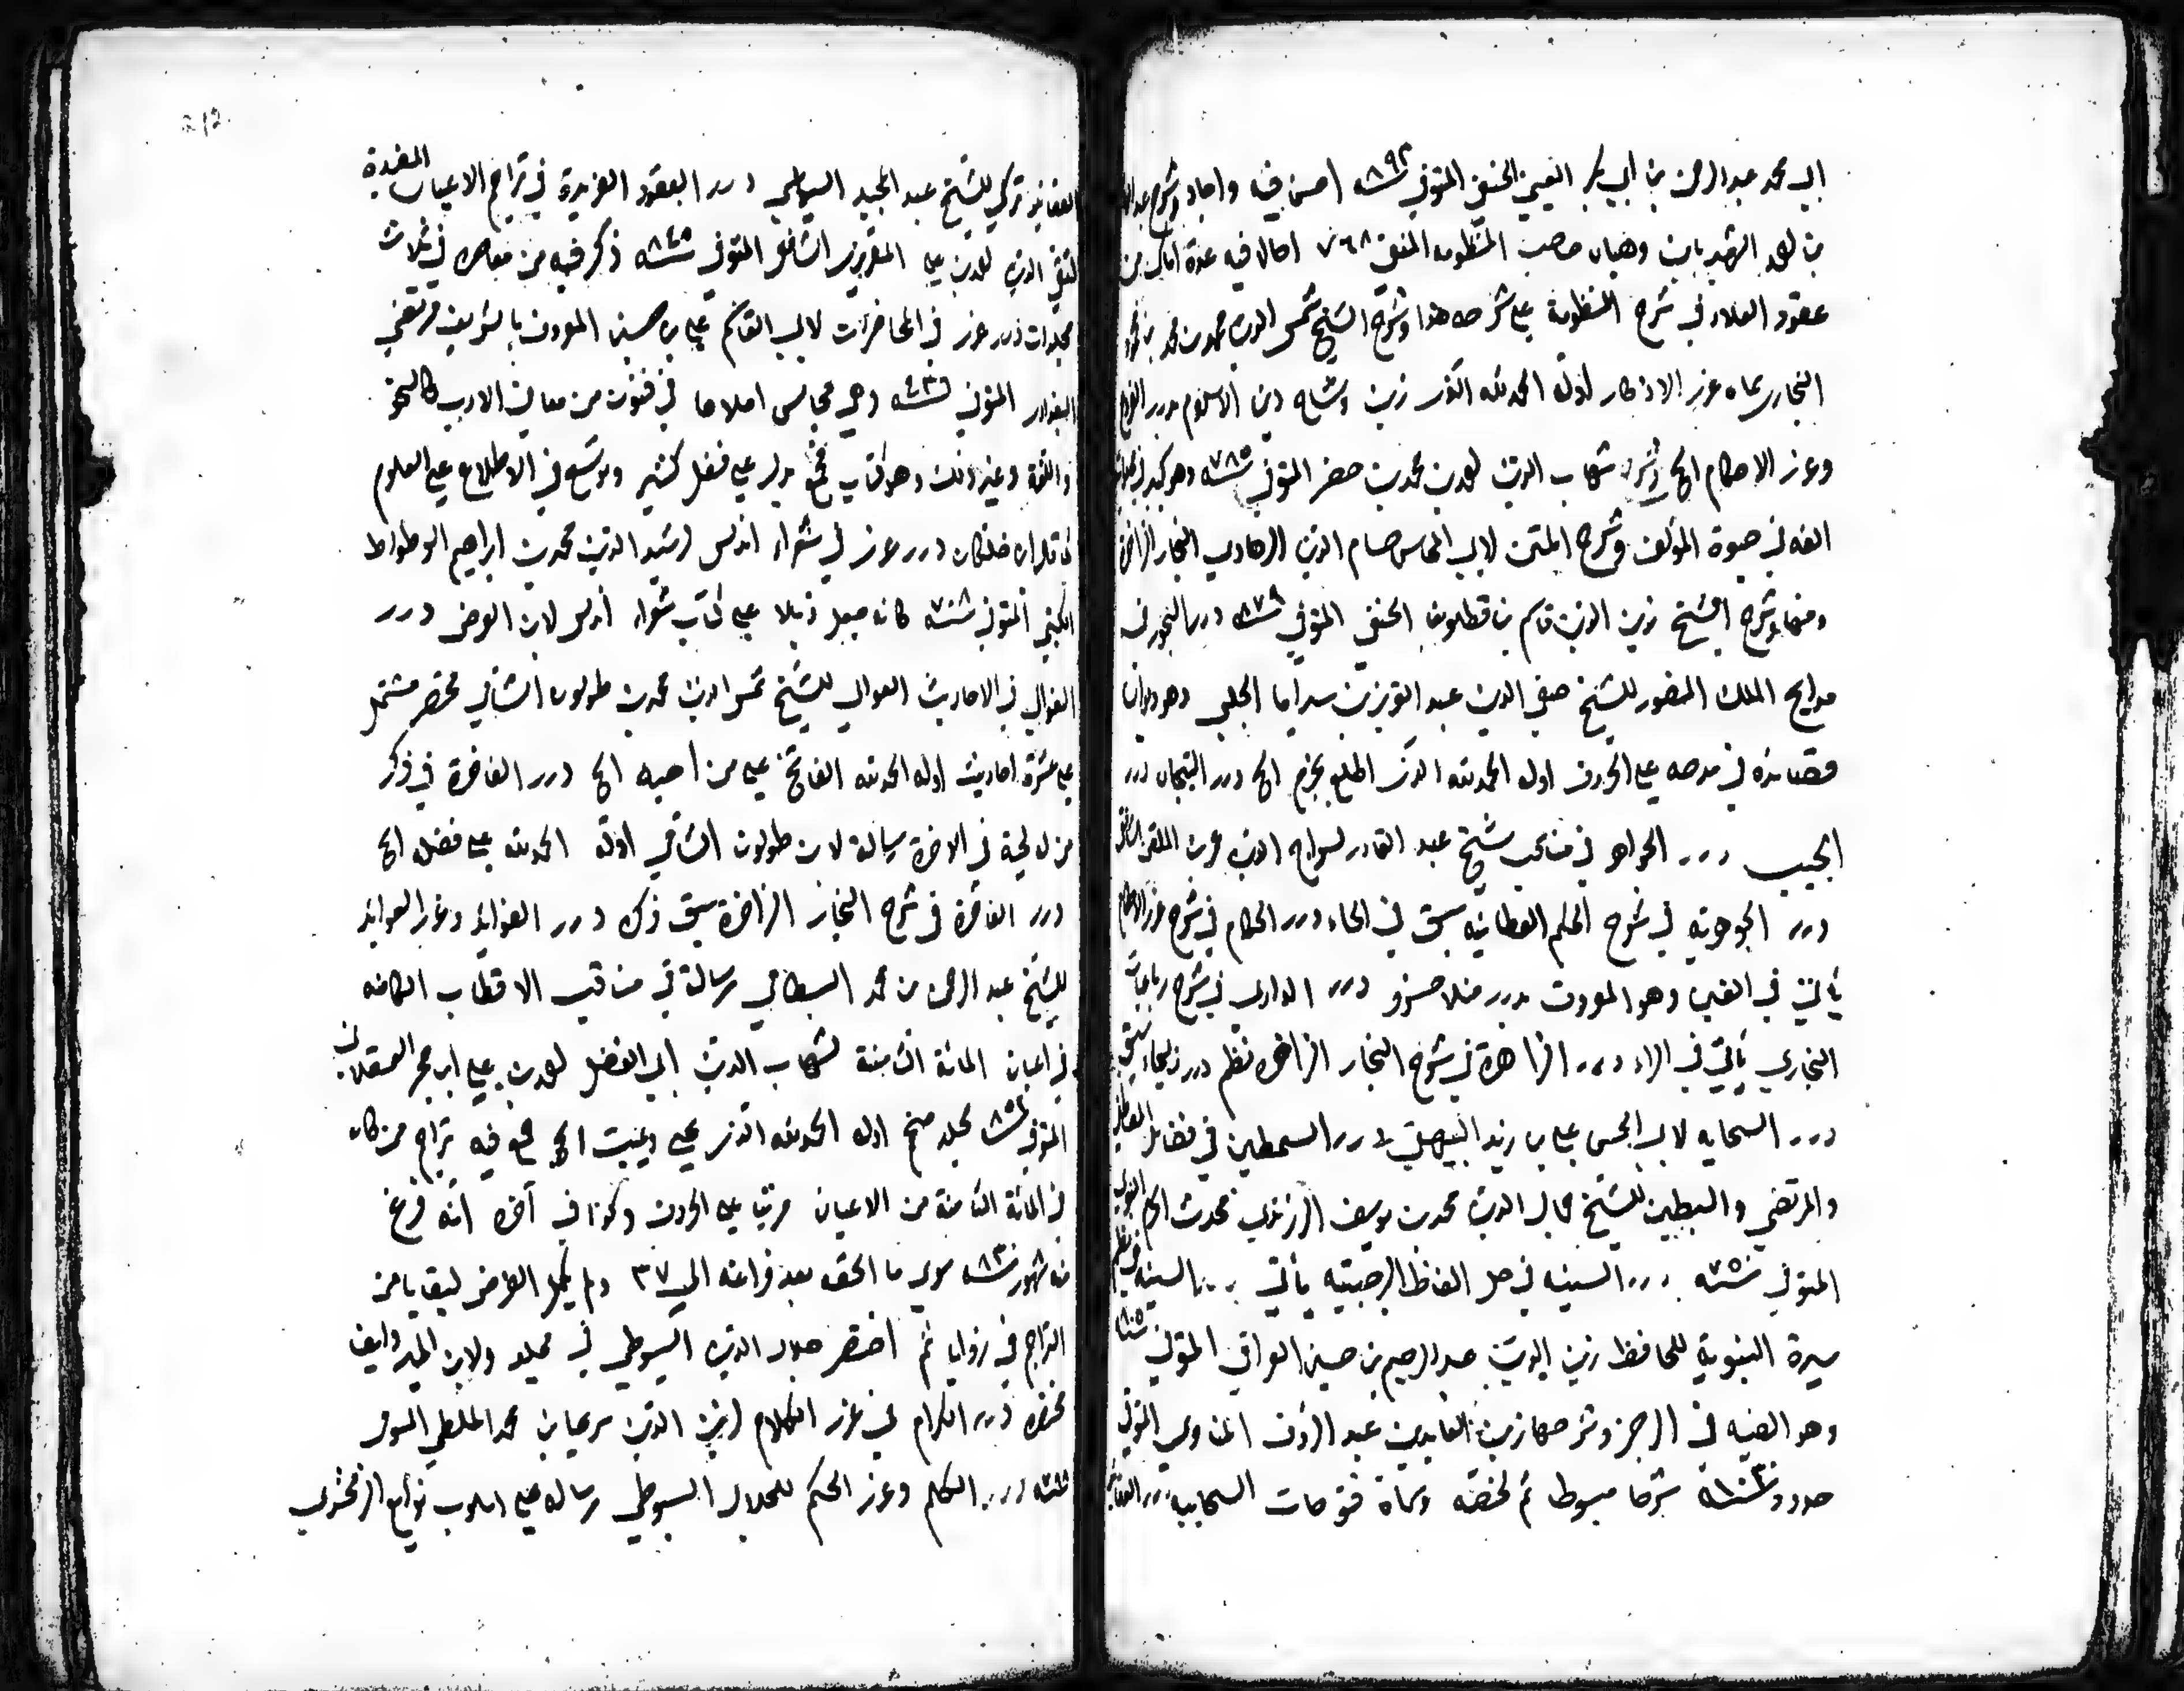 ابي محمد عبدالرحمن بن أبي بكر العيني الحنفي المتوفى سنة ٨٩٣ احسن فيه واجاد وشرح عبدالوهاب
بن احمد الشهير بابن وهبان صاحب المنظومه المتوفى ٧٦٨ احال فيه عدة اماكن من
عقود القلائد في شرح المنظومة على شرحه هذا وشرح الشيخ شمس الدين محمد بن محمد بن محمود
البخاري سماه غرر الاذكار اوله الحمدلله الذي زين وشاح دين الاسلام بدرر الفرائد
وغرر الاحكام الخ وشرح شهاب الدين احمد بن محمد بن خضر المتوفى سنة ٧٨٥ وهو كبير في مجلدات
الفه في حيوة المؤلف وشرح المتن لابي المحاسن حسام الدين الرهاوي البحار الزاخرة
ومنها شرح الشيخ زين الدين قاسم بن قطلوبغا الحنفي المتوفى سنة ٨٧٩ درر البحور في
مدايح الملك المنصور للشيخ صفي الدين عبد العزيز بن سرايا الحلي وهو ديوان
قصائده في مدحه على الحروف اوله الحمدلله الذي الخ درر التيجان درر
الجيب درر الجواهر في مناقب شيخ عبد القادر لسراج الدين عمر بن الملقن الشافعي
درر الجوهرية في شرح الحكم العطائيه سبق في الحاء درر الحكام في شرح غرر الاحكام
يأتي في الغين وهو المعروف بدرر منلا خسرو درر الدراري في شرح رباعيات
البخاري يأتي في الراء درر الزاهرة في شرح البحار الزاخره نظم درر سبق
درر السحابه لابي الحسن علي بن زيد البيهقي درر السمطين في فضائل المصطفى
والمرتضى والسبطين للشيخ جمال الدين محمد بن يوسف الزرندي محدث الحرم النبوي
المتوفى سنة ٧٥٠ درر السنيه في حل الفاظ الرحبيه يأتي درر السنيه في نظم
سيرة النبوية للحافظ زين الدين عبدالرحيم بن حسين العراقي المتوفى سنة ٨٠٥
وهو الفيه في الرجز وشرحها زين العابدين عبد الرؤف المناوي المتوفى
حدود سنة ١٠٣٠ شرحا مبسوطا ثم لخصه وسماه فتوحات السبحانيه درر العقائد
العثمانيه تركي للشيخ عبد المجيد السيواسي درر العقود الفريدة في تراجم الاعيان المفيدة
لتقي الدين احمد بن علي المقريزي الشافعي المتوفى سنة ٨٤٥ ذكر فيه من معاصره في ثلاث
مجلدات درر غرر في المحاضرات لابي القاسم علي بن حسين المعروف بالشريف مرتضى
البغدادي المتوفى سنة ٤٣٦ وهي مجالس املاها في فنون من معاني الادب كالنحو
واللغة وغير ذلك وهو كتاب ممتع يدل على فضل كثير وتوسع في الاطلاع على العلوم
كما قال ابن خلكان درر غرر في شعراء اندلس لرشيد الدين محمد بن ابراهيم الوطواط
الكتبي المتوفى سنة ٧١٨ كانه جعل ذيلا على كتاب شعراء اندلس لابن الفرضي درر
الغوالي في الاحاديث العوالي للشيخ شمس الدين محمد بن طولون الشامي مختصر مشتمل
على عشرة احاديث اوله الحمدلله الفاتح على من احبه الخ درر الفاخرة في ذكر
من له لحية في الاخرة رسالة لابن طولون الشامي اوله الحمدلله على فضله الخ
درر الفاخرة في شرح البحار الزاخرة سبق ذكره درر الفوائد وغرر العوائد
للشيخ عبد الرحمن بن محمد البسطامي رسالة في مناقب الاقطاب درر الكامنه
في اعيان المائة الثامنة لشهاب الدين ابي الفضل احمد بن علي ابن حجر العسقلاني
المتوفى سنة ٨٥٢ مجلد ضخم اوله الحمدلله الذي يحيي ويميت الخ جمع فيه تراجم من كان
في المائة الثامنة من الاعيان مرتبا على الحروف وذكر في آخره انه فرغ
منه في شهور سنة ٨٣٠ سوى ما الحقه بعد فراغه الى ٣٧ ولم يكمل الغرض لبقايا من
التراجم في زوايا ثم اختصره جلال الدين السيوطي في مجلد ولابن المبرد ايضا
مختصره درر الكرام في غرر الكلام لزين الدين سريجا بن محمد الملطي المتوفى
سنة درر الكلم وغرر الحكم للجلال السيوطي رساله على اسلوب نوابغ الزمخشري